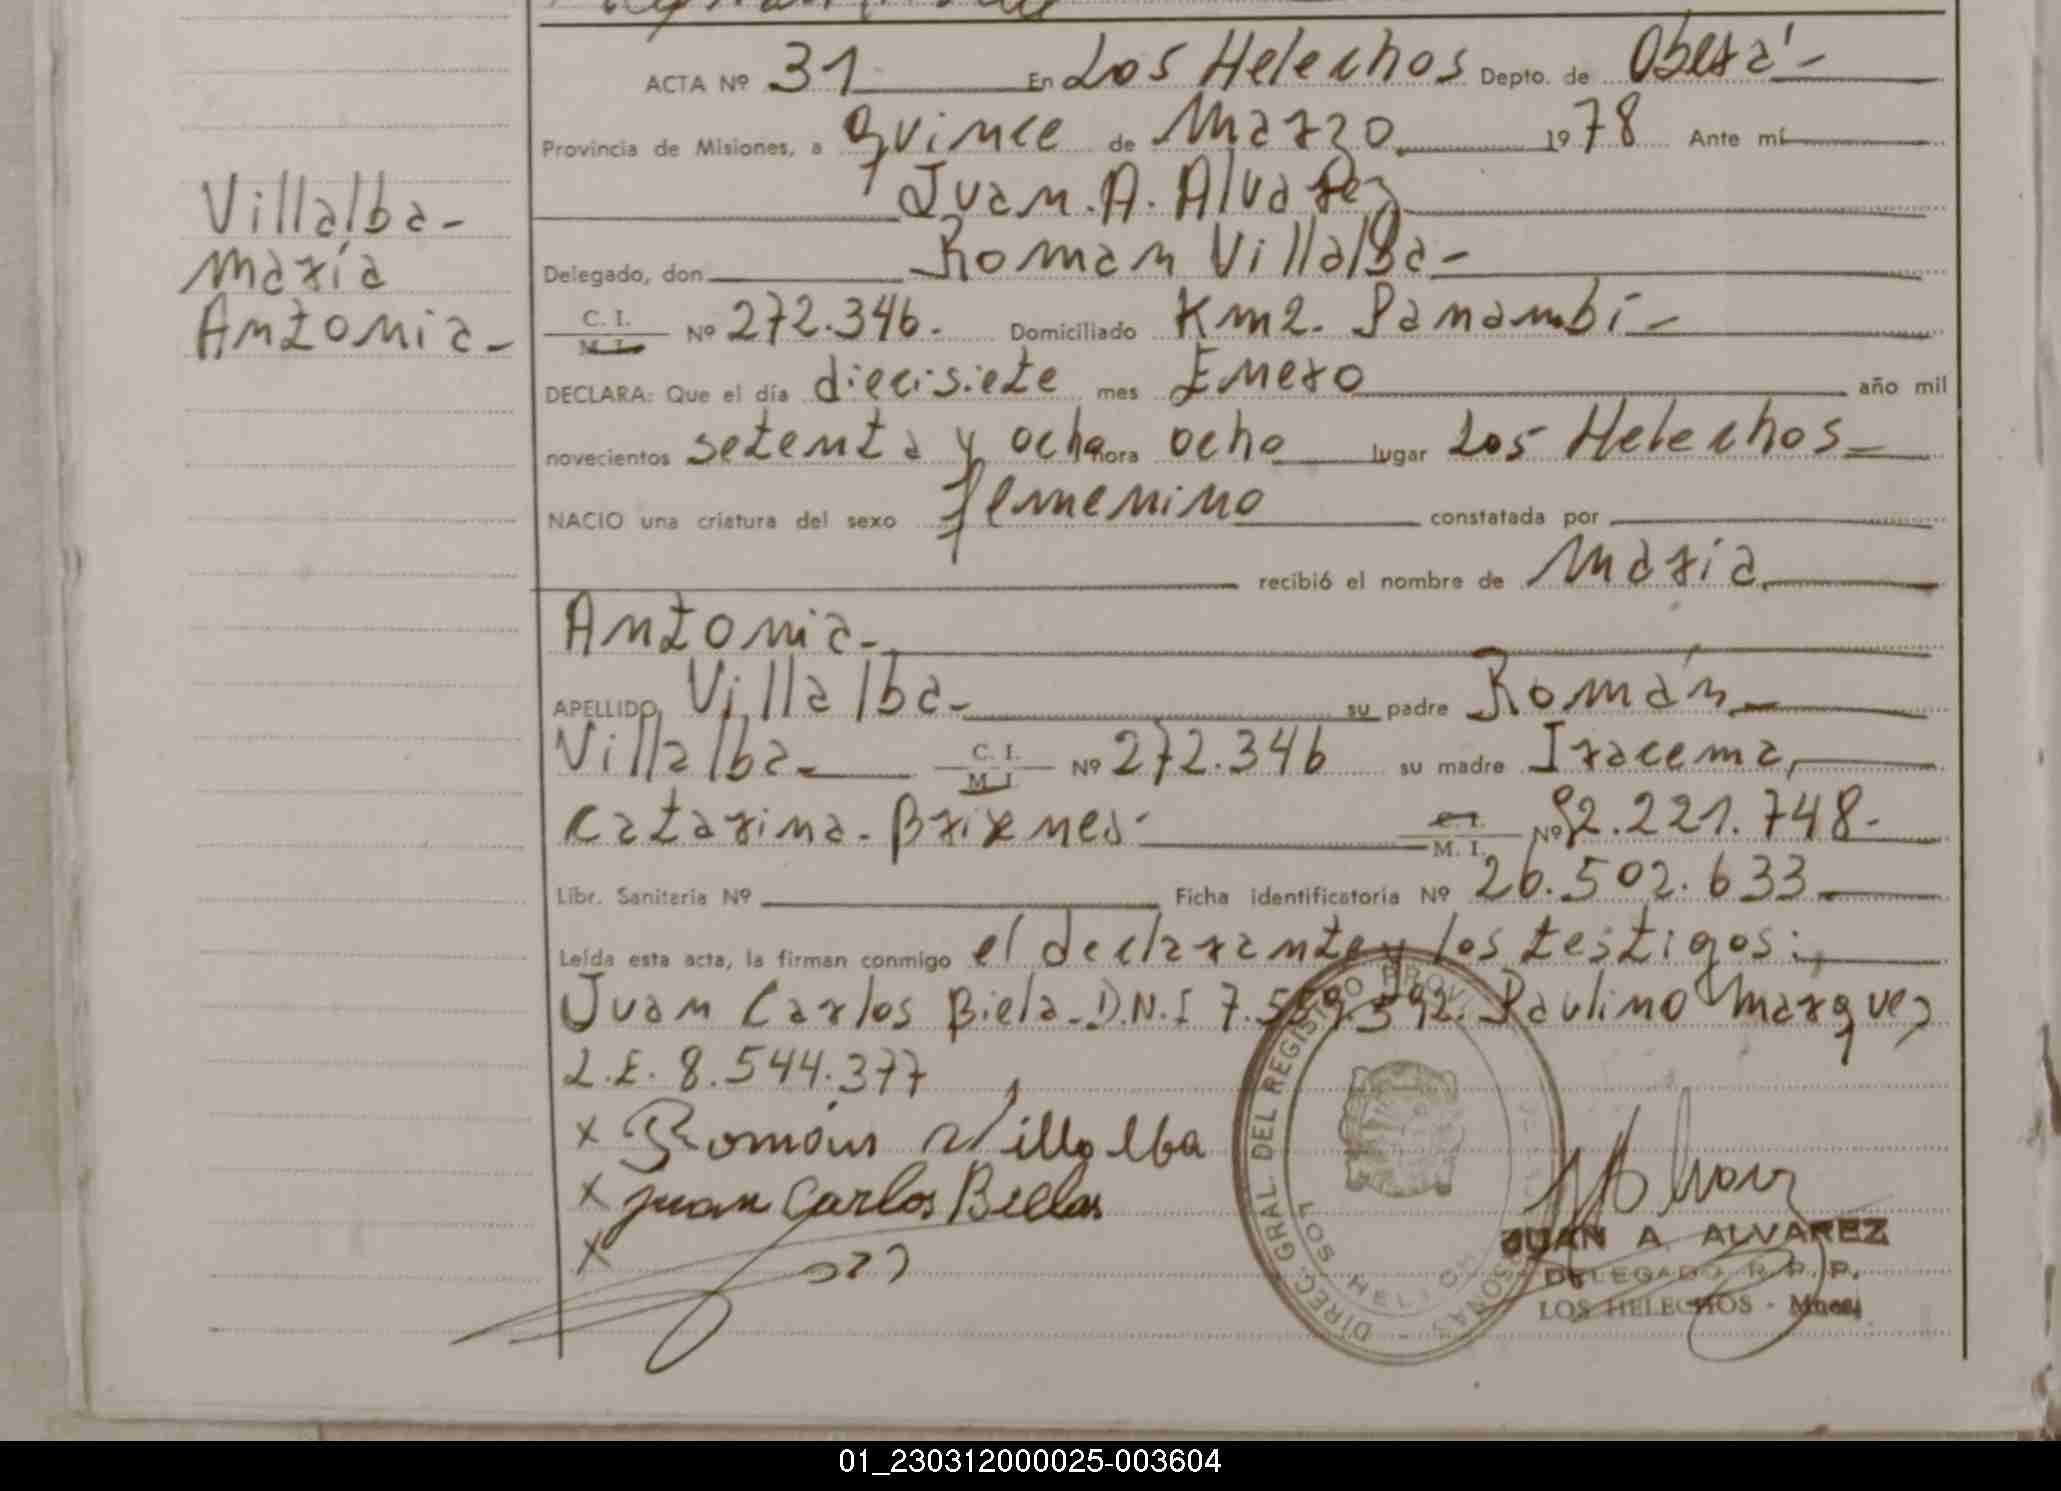 ACTA Nº 31 En Los Helechos Depto. de Oberá -
Provincia de Misiones, a quince de Marzo 1978 Ante mí
Juan. A. Alvarez
Delegado, don Roman Villalba -
C. I. M. I. Nº 272.346. Domiciliado Km 2. Panambí -
DECLARA: Que el día diecisiete mes Enero año mil
novecientos setenta y ocho hora ocho lugar Los Helechos -
NACIO una criatura del sexo femenino constatada por
recibió el nombre de María
Antonia -
APELLIDO Villalba - su padre Román -
Villalba - C. I. M. I. Nº 272.346 su madre Iracema
Catarina - Nº 2.221.748 -
C. I. M. I.
Libr. Sanitaria Nº Ficha identificatoria Nº 26.502.633 -
Leída esta acta, la firman conmigo el declarante y los testigos:
Juan Carlos Biela - D.N.I 7.559.592. Paulino Marquez
L.E. 8.544.377
x Román Villalba
x Juan Carlos Biela
x
JUAN A. ALVAREZ
DELEGADO R. P. P.
LOS HELECHOS - Mnes.
DIREC. GRAL. DEL REGISTRO PROV.
LOS HELECHOS
Villalba -
María
Antonia -
01_230312000025-003604